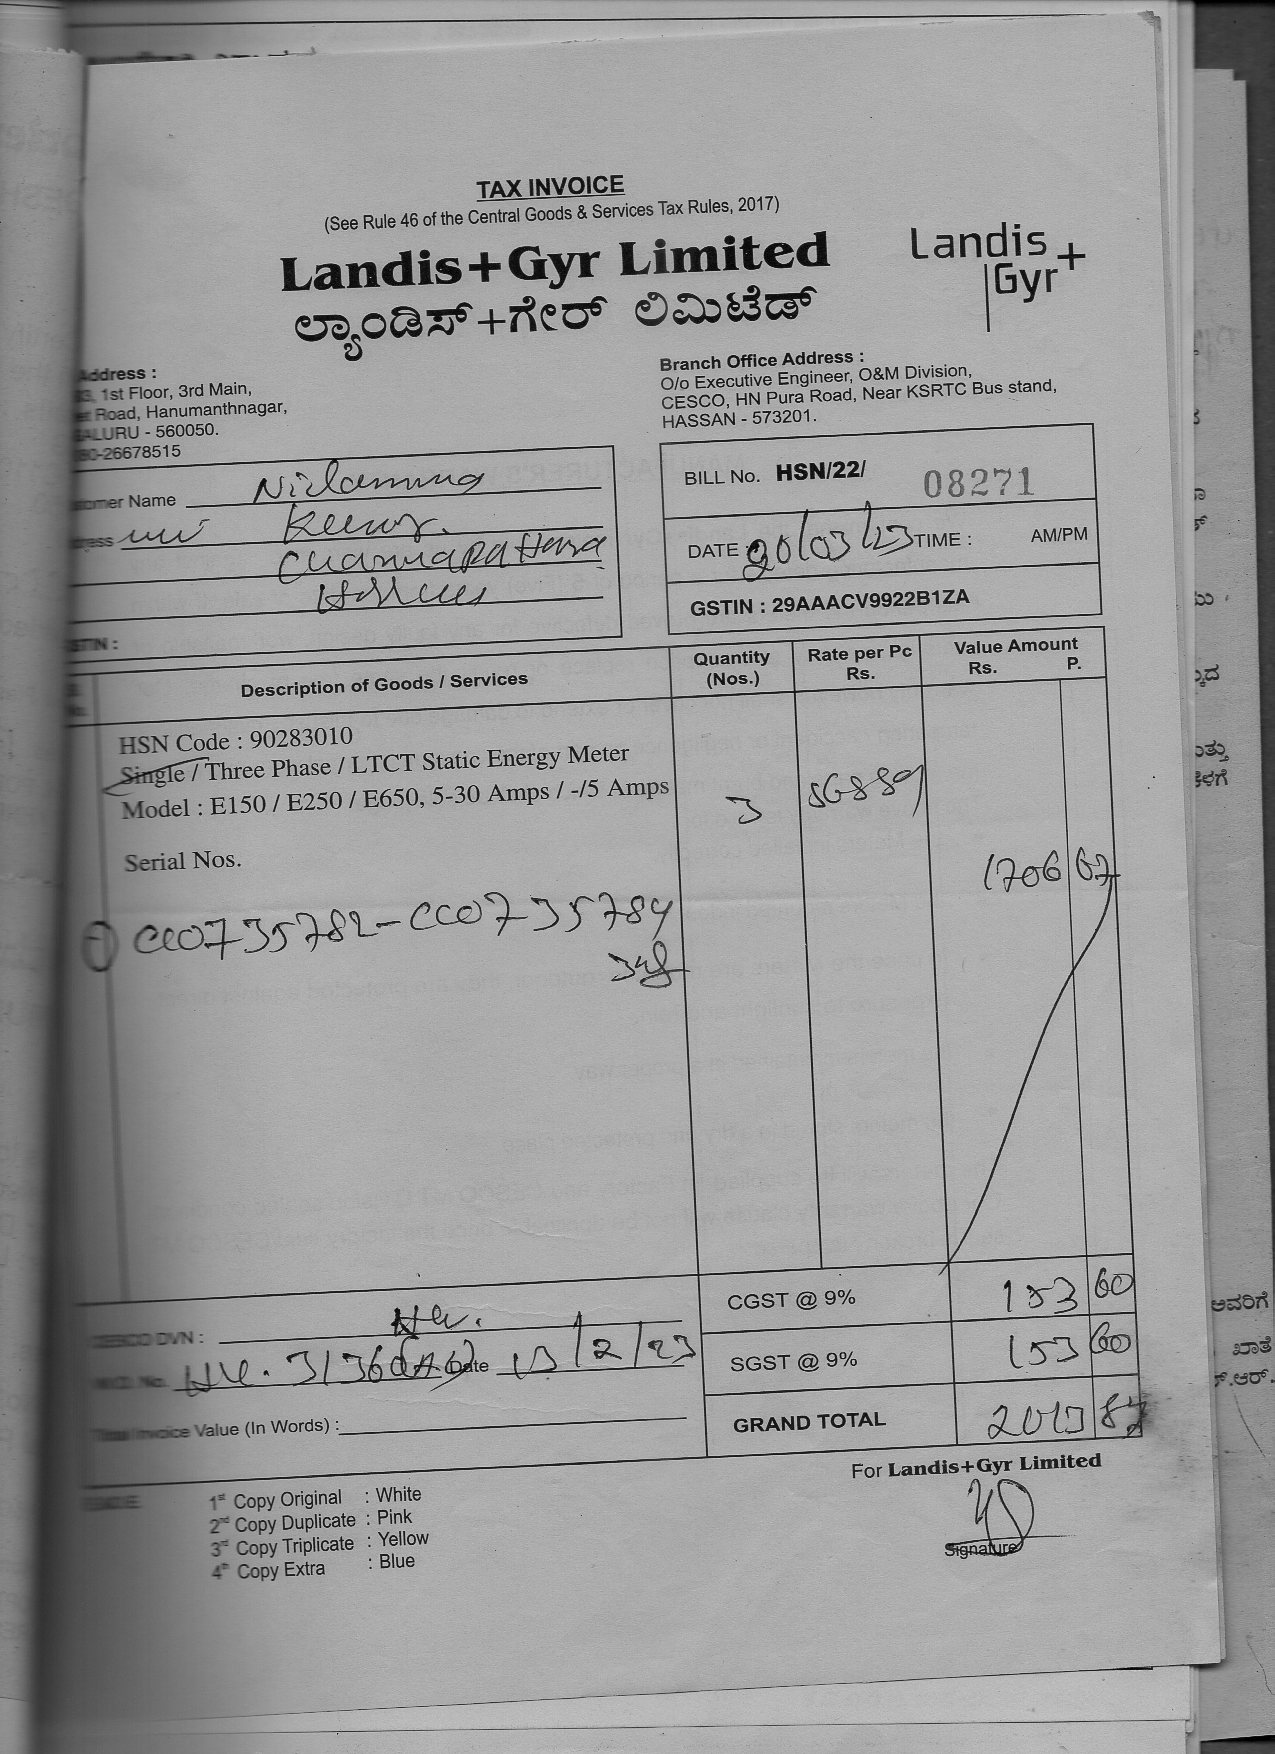 TAX INVOICE
(See Rule 46 of the Central Goods & Services Tax Rules, 2017)
Landis+Gyr Limited
ಲ್ಯಾಂಡಿಸ್+ಗೇರ್ ಲಿಮಿಟೆಡ್
Landis
Gyr+
Address :
1st Floor, 3rd Main,
Road, Hanumanthnagar,
ALURU - 560050.
80-26678515
Branch Office Address :
O/o Executive Engineer, O&M Division,
CESCO, HN Pura Road, Near KSRTC Bus stand,
HASSAN - 573201.
Customer Name
Address
GSTIN :
BILL No. HSN/22/ 08271
DATE 20/03/23 TIME : AM/PM
GSTIN : 29AAACV9922B1ZA
No. Description of Goods / Services Quantity (Nos.) Rate per Pc Rs. Value Amount Rs. P.
HSN Code : 90283010
Single / Three Phase / LTCT Static Energy Meter
Model : E150 / E250 / E650, 5-30 Amps / -/5 Amps
3 568.89
Serial Nos.
1706 67
CC0735782-CC0735784
CGST @ 9% 153 60
SGST @ 9% 153 60
GRAND TOTAL 2013 87
DVN :
No. Date 13/2/23
Total Invoice Value (In Words) :
For Landis+Gyr Limited
Signature
1st Copy Original : White
2nd Copy Duplicate : Pink
3rd Copy Triplicate : Yellow
4th Copy Extra : Blue
ಅವರಿಗೆ
ಖಾತೆ